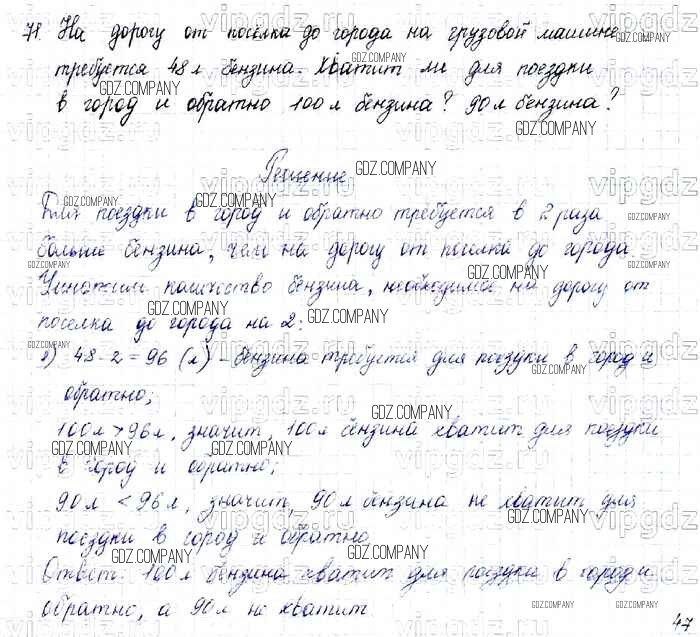 71. На дорогу от посёлка до города на грузовой машине
требуется 48 л бензина. Хватит ли для поездки
в город и обратно 100 л бензина? 90 л бензина?
Решение
Для поездки в город и обратно требуется в 2 раза
больше бензина, чем на дорогу от посёлка до города.
Умножим количество бензина, необходимое на дорогу от
поселка до города на 2:
1) 48 · 2 = 96 (л) - бензина требуется для поездки в город и
обратно;
100 л > 96 л, значит, 100 л бензина хватит для поездки
в город и обратно;
90 л < 96 л, значит, 90 л бензина не хватит для
поездки в город и обратно
Ответ: 100 л бензина хватит для поездки в город и
обратно, а 90 л не хватит.
47
GDZ.COMPANY
vipgdz.ru